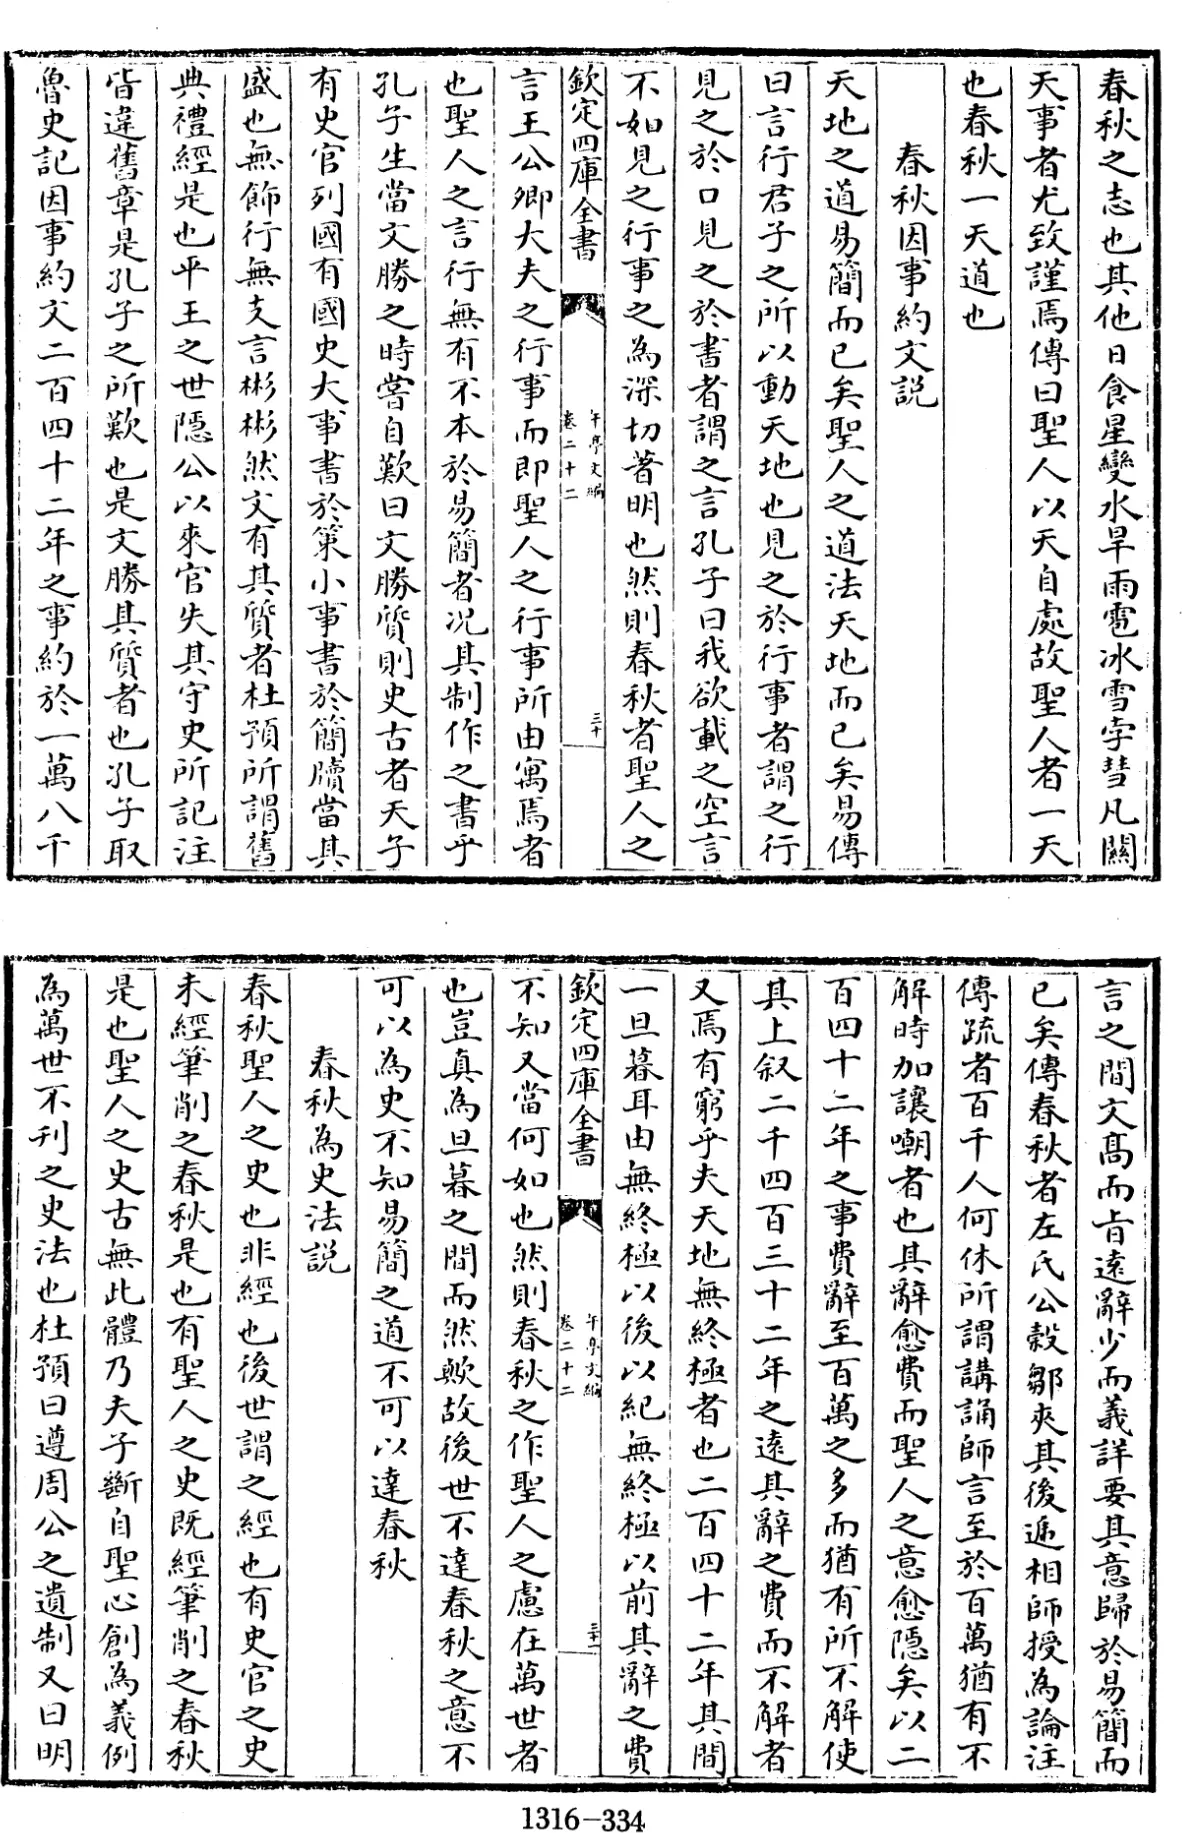 春秋之志也其他日食星變水旱雨雹冰雪孛彗凡關
天事者尤致謹焉傳曰聖人以天自處故聖人者一天
也春秋一天道也
春秋因事約文説
天地之道易簡而已矣聖人之道法天地而已矣易傳
曰言行君子之所以動天地也見之於行事者謂之行
見之於口見之於書者謂之言孔子曰我欲載之空言
不如見之行事之為深切著明也然則春秋者聖人之
欽定四庫全書
午亭文編
卷二十二
三十
言王公卿大夫之行事而即聖人之行事所由寓焉者
也聖人之言行無有不本於易簡者況其制作之書乎
孔子生當文勝之時嘗自歎曰文勝質則史古者天子
有史官列國有國史大事書於策小事書於簡牘當其
盛也無飾行無支言彬彬然文有其質者杜預所謂舊
典禮經是也平王之世隱公以來官失其守史所記注
皆違舊章是孔子之所歎也是文勝其質者也孔子取
魯史記因事約文二百四十二年之事約於一萬八千
言之間文髙而㫖逺辭少而義詳要其意歸於易簡而
已矣傳春秋者左氏公榖鄒夾其後遞相師授為論注
傳疏者百千人何休所謂講誦師言至於百萬猶有不
解時加讓嘲者也其辭愈費而聖人之意愈隱矣以二
百四十二年之事費辭至百萬之多而猶有所不解使
其上叙二千四百三十二年之逺其辭之費而不解者
又焉有窮乎夫天地無終極者也二百四十二年其間
一旦暮耳由無終極以後以紀無終極以前其辭之費
欽定四庫全書
午亭文編
卷二十二
三十一
不知又當何如也然則春秋之作聖人之慮在萬世者
也豈真為旦暮之間而然歟故後世不達春秋之意不
可以為史不知易簡之道不可以達春秋
春秋為史法説
春秋聖人之史也非經也後世謂之經也有史官之史
未經筆削之春秋是也有聖人之史既經筆削之春秋
是也聖人之史古無此體乃夫子斷自聖心創為義例
為萬世不刋之史法也杜預曰遵周公之遺制又曰明
1316-334